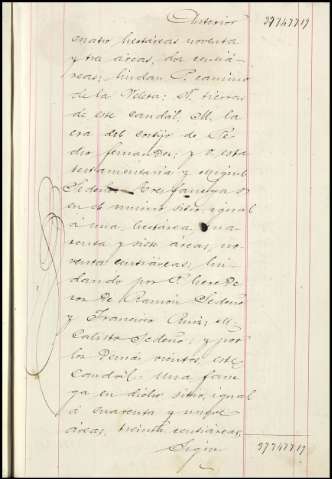 Anterior 37747'19
cuatro hectáreas noventa
y tres áreas, dos centiá-
reas; lindan P. camino
de la Veleta; N. tierras
de este caudal, M. la
era del cortijo de Pe-
dro Fernandez; y O. esta
testamentaría y Miguel
Sedeño. Tres fanegas
en el mismo sitio, igual
á una hectárea, cua-
renta y siete áreas, no-
venta centiáreas; lin-
dando por P. herede-
ros de Ramón Sedeño
y Francisco Ruiz; M.
Calisto Sedeño; y por
los demas vientos, este
caudal. Una fane-
ga en dicho sitio, igual
á cuarenta y nueve
áreas, treinta centiáreas,
Sigue 37747'19